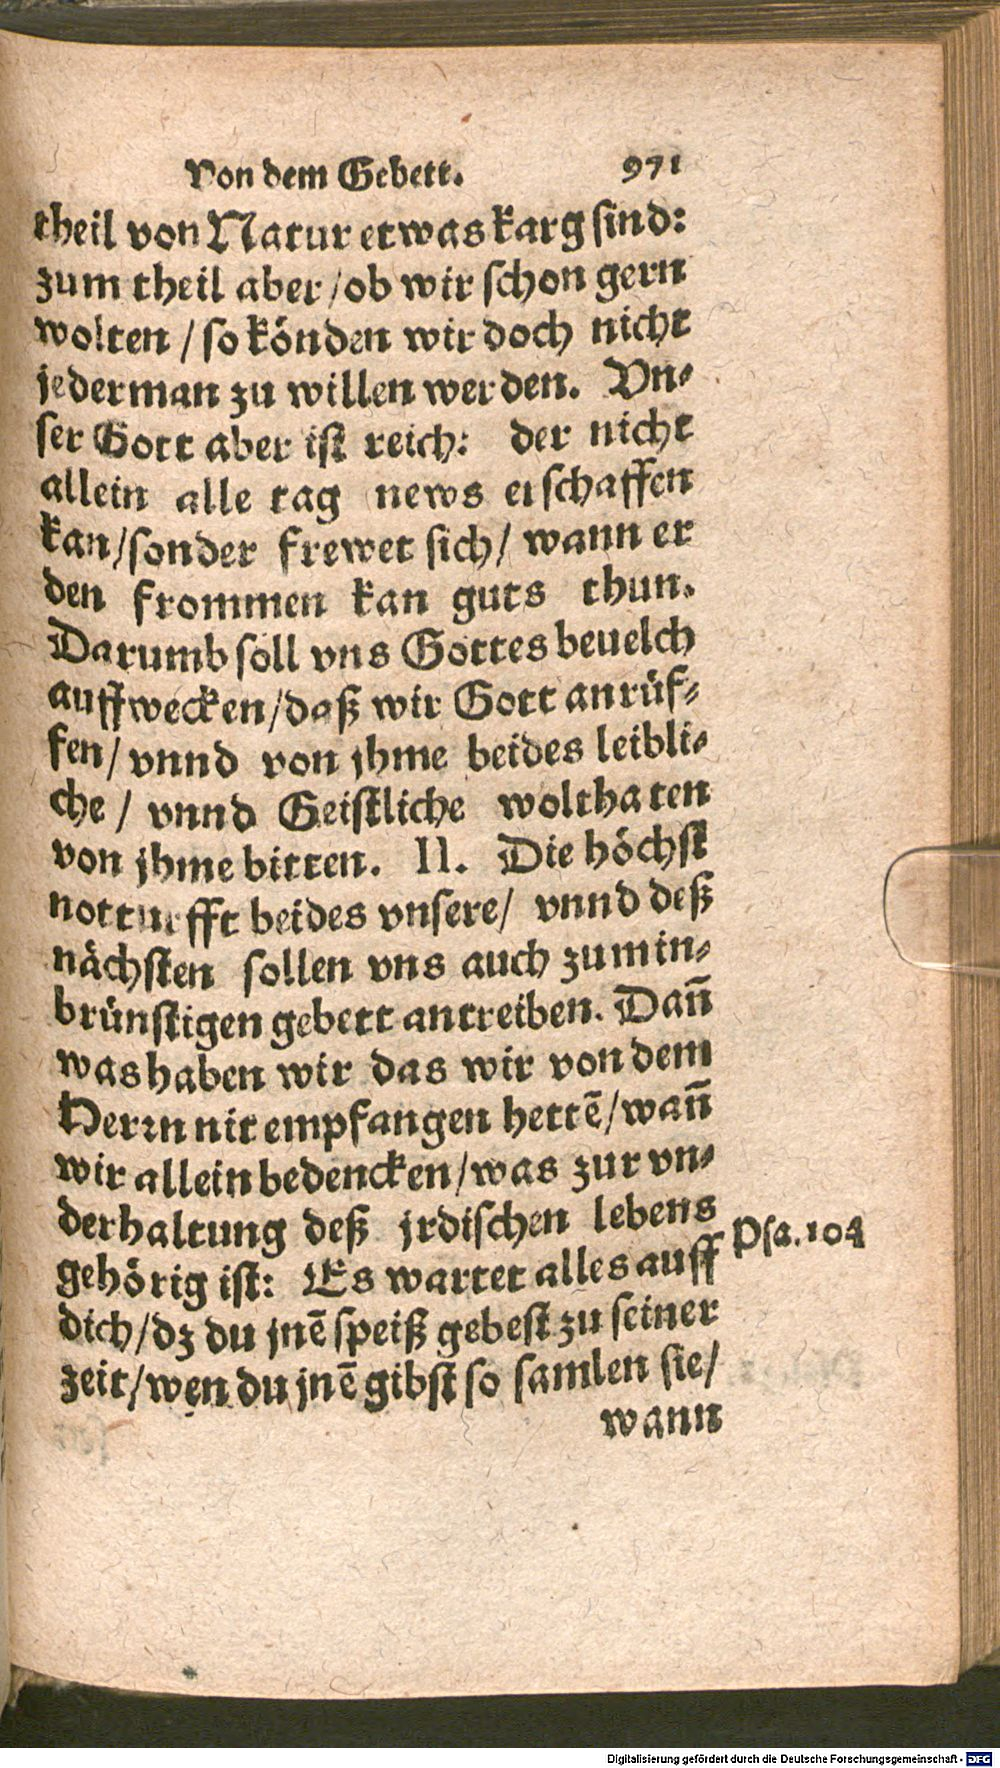 Von dem Gebett. 971
theil von Natur etwas karg sind:
zum theil aber / ob wir schon gern
wolten / so könden wir doch nicht
jederman zu willen werden. Vn-
ser Gott aber ist reich: der nicht
allein alle tag news erschaffen
kan / sonder frewet sich / wann er
den frommen kan guts thun.
Darumb soll vns Gottes beuelch
auffwecken / daß wir Gott anrüf-
fen / vnnd von jhme beides leibli-
che / vnnd Geistliche wolthaten
von jhme bitten. II. Die höchst
notturfft beides vnsere / vnnd deß
nächsten sollen vns auch zum in-
brünstigen gebett antreiben. Dañ
was haben wir das wir von dem
Herrn nit empfangen hettẽ / wañ
wir allein bedencken / was zur vn-
derhaltung deß jrdischen lebens
gehörig ist: Es wartet alles auff Psa. 104
dich / dz du jnẽ speiß gebest zu seiner
zeit / wen du jnẽ gibst so samlen sie /
wann
Digitalisierung gefördert durch die Deutsche Forschungsgemeinschaft - DFG